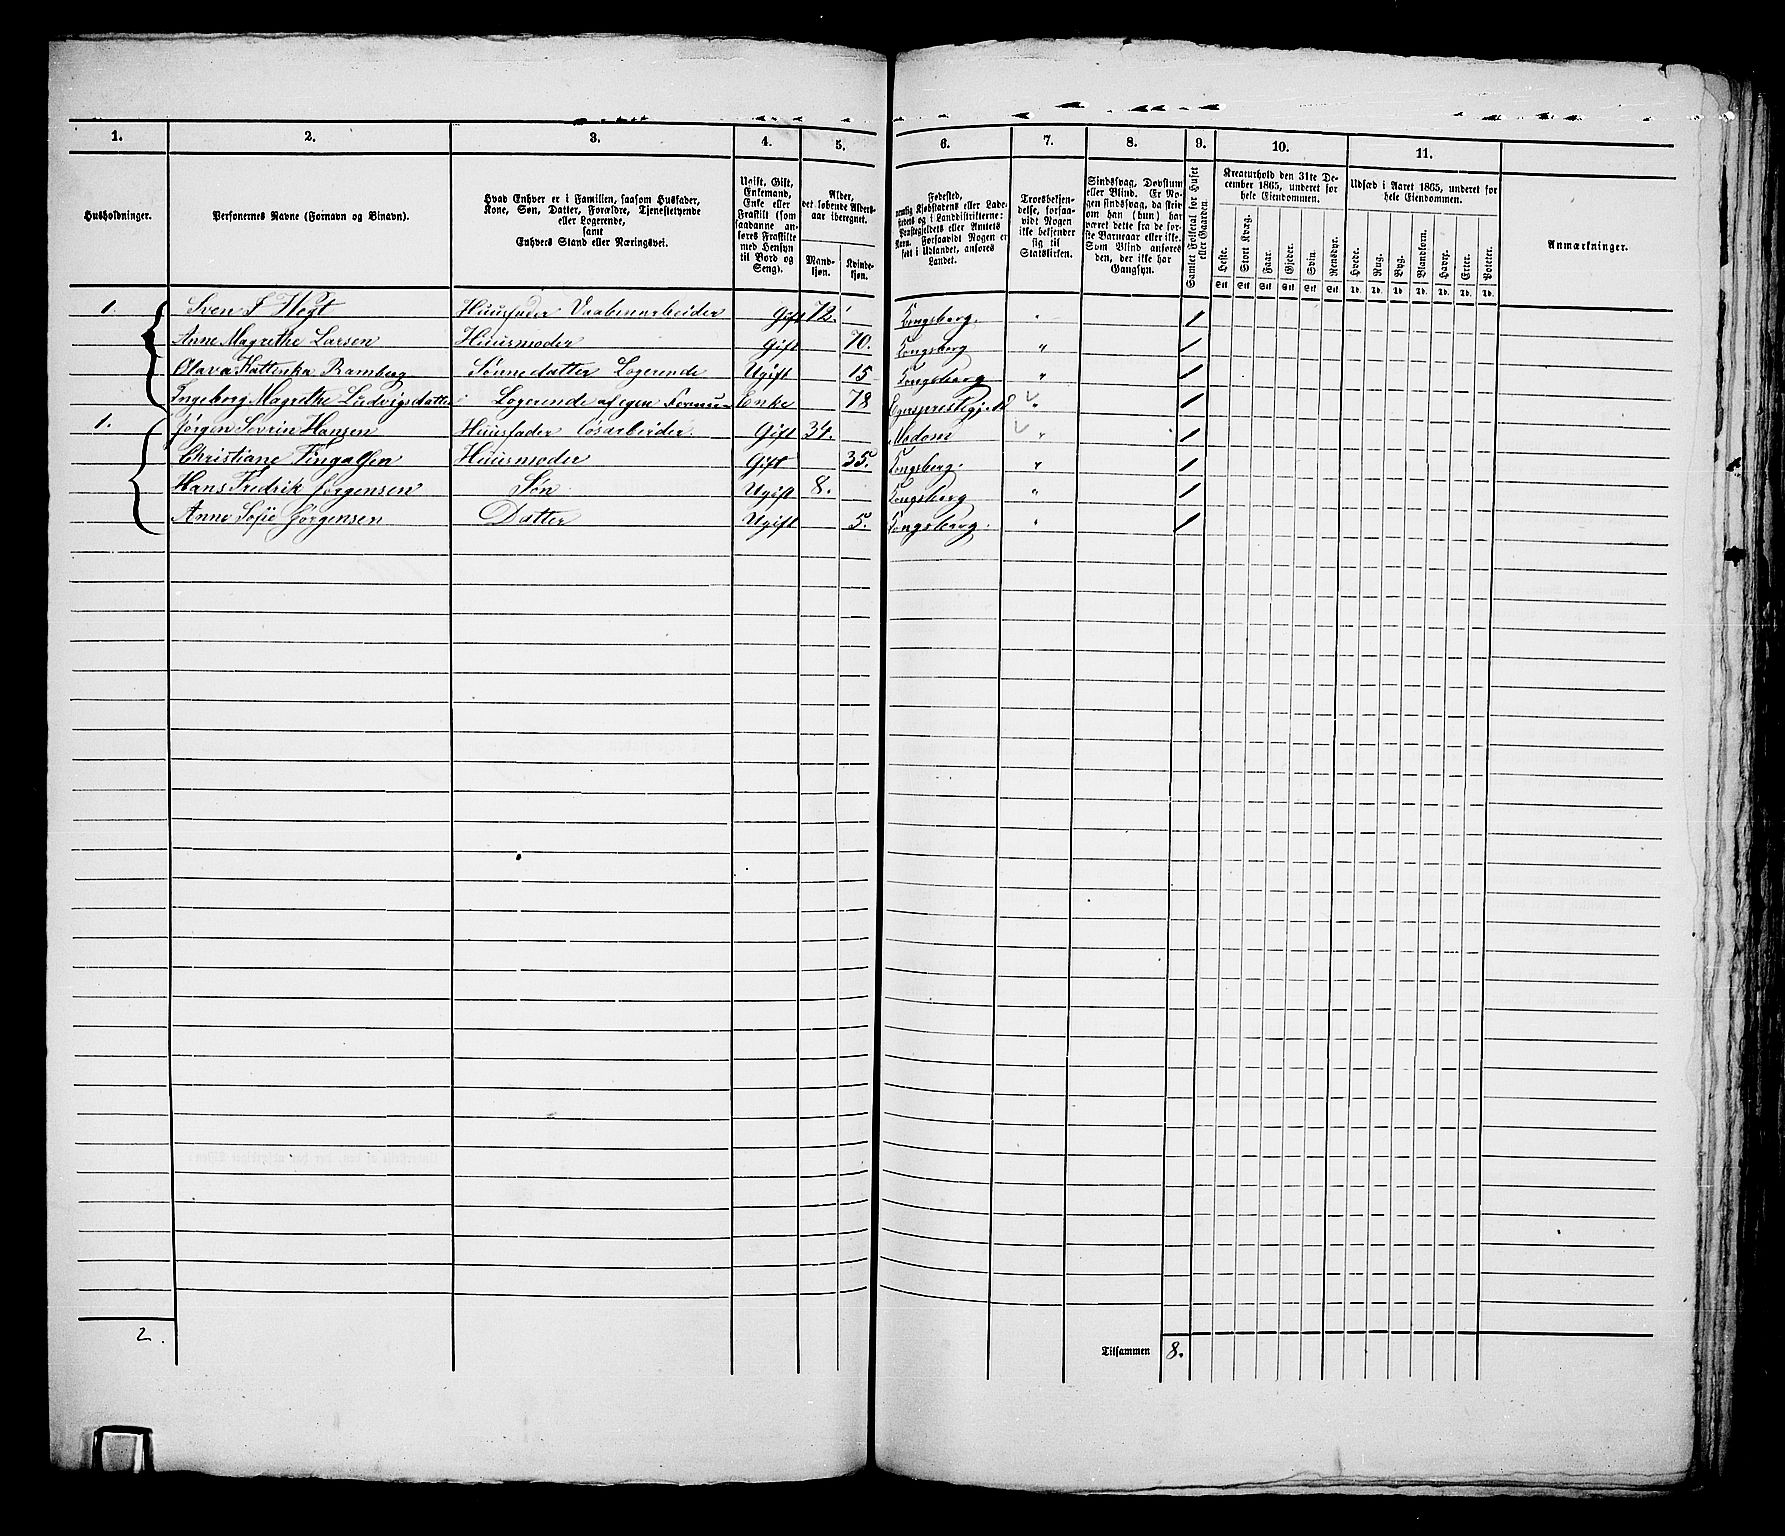 1. 2. 3. 4. 5. 6. 7. 8. 9. 10. 11.
Husholdninger.
Personernes Navne (Fornavn og Binavn).
Hvad Enhver er i Familien, saasom Husfader,
Kone, Søn, Datter, Forældre, Tjenestetyende
eller Logerende,
samt
Enhvers Stand eller Næringsvei.
Ugift, Gift,
Enkemand,
Enke eller
Fraskilt (som
saadanne an-
føres Fraskilte
med Hensyn
til Bord og
Seng).
Alder,
det løbende Alders-
aar iberegnet.
Mand-
kjøn.
Kvinde-
kjøn.
Fødested,
nemlig Kjøbstadens eller Lade-
stedets og i Landdistrikterne:
Præstegjeldets eller Amtets
Navn. Forsaavidt Nogen er
født i Udlandet, anføres
Landet.
Troesbekjen-
delse, forsaa-
vidt Nogen
ikke bekjender
sig til
Statskirken.
Sindssvag, Døvstum
eller Blind. Er No-
gen sindssvag, da skriv
om han (hun) har
været dette fra de før-
ste Barneaar eller ikke.
Som Blind anføres
den, der ikke har
Gangsyn.
Samlet Folketal for Huset
eller Gaarden.
Kreaturhold den 31te De-
cember 1865, underet for
hele Eiendommen.
Heste. Stort Kvæg. Faar. Gjeder. Svin. Rensdyr.
Stk Stk Stk Stk Stk Stk
Udsæd i Aaret 1865, underet for
hele Eiendommen.
Hvede. Rug. Byg. Blandkorn. Havre. Erter. Poteter.
Td. Td. Td. Td. Td. Td. Td.
Anmærkninger.
1. Sven F Hegt Huusfader Vaabenarbeider Gift 72. Kongsberg. "
Anne Magrethe Larsen Huusmoder Gift 70. Kongsberg "
Olava Kattinka Ramberg Sønnedatter Logerende Ugift 15 Kongsberg "
Ingeborg Magrethe Ludvigsdatter Logerende af egen Formu Enke 78 Egerspræstegjeld "
1. Jørgen Sevrin Hansen Huusfader Løsarbeider. Gift 34. Modom "
Christiane Fingalsen Huusmoder Gift 35. Kongsberg. "
Hans Fredrik Jørgensen Søn Ugift 8. Kongsberg "
Anne Sofie Jørgensen Datter Ugift 5. Kongsberg. "
2.
Tilsammen 8.